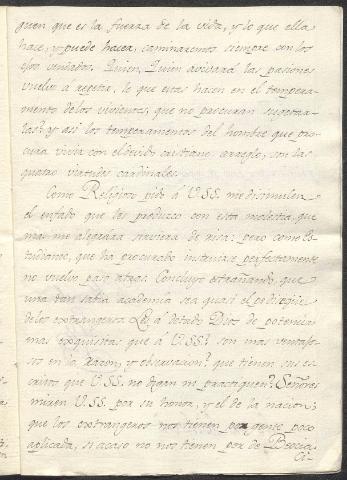 guen que es la fuerza de la vida, y lo que ella
hace, y puede hacer, caminaremos siempre con los
ojos vendados. Quien, Quien avivará las pasiones
vuelvo à repetir, lo que estas hacen en el tempera-
mento de los vivientes, que no procuran sugetar-
las? y asi los temperamentos del hombre que pro-
cura vivir con el devido cristiano arreglo, son las
quatro virtudes cardinales.
Como Religioso pido á V.SS. me disimulen
el enfado que les produzco con esta molestia, que
mas me alegrara sirviera de risa: pero como Es-
tudiante, que ha procurado instruirse perfectamente
no vuelvo paso atras. Concluyo extrañando, que
una tan sabia academia sea quasi el
de los extrangeros. Les á dotado Dios de potencias
mas exquisitas que à V.SS? son mas ventajo-
sos en la razon, y observacion? que tienen sus es-
critos que V.SS. no digan ni practiquen? Señores
miren V.SS. por su honor, y el de la nacion;
que los extrangeros nos tienen por gente poco
aplicada, si acaso no nos tienen por de Beocia.